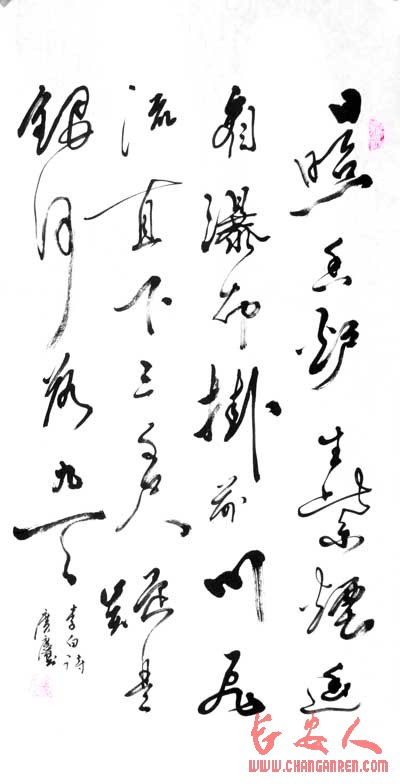 日照香炉生紫煙遥
看瀑布掛前川飛
流直下三千尺疑是
銀河落九天
李白诗
长安人
WWW.CHANGANREN.COM